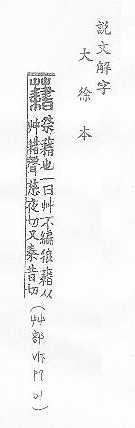 說文解字
大徐本
藉
祭藉也一曰艸不編狼藉从
艸耤聲慈夜切又秦昔切
(艸部